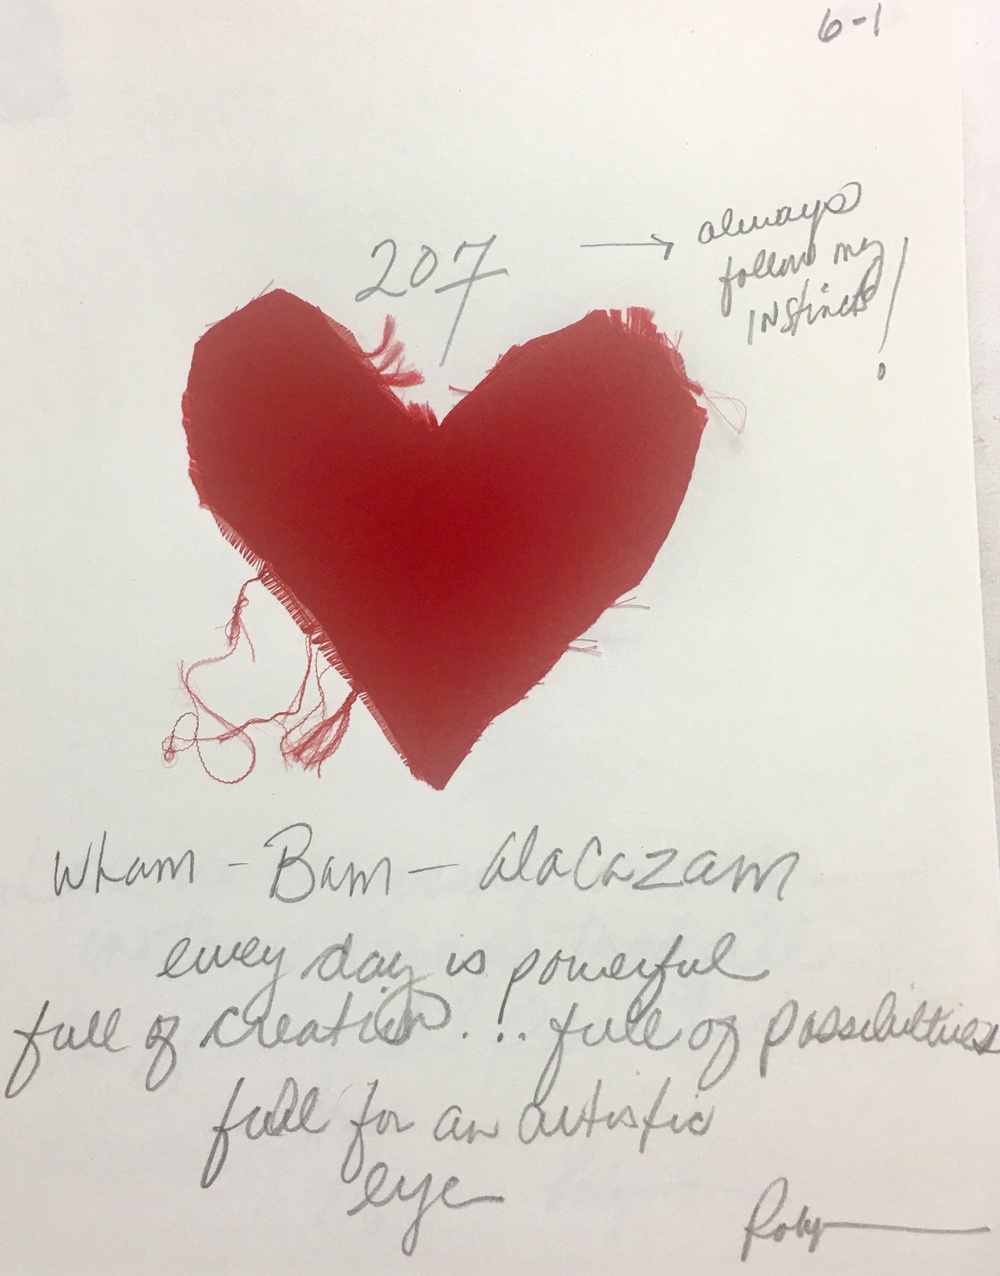 6-1
207 → always
follow my
INstincts!
Wham - Bam - alaCazam
every day is powerful
full of creation... full of possibilities
full for an artistic
eye
Robyn